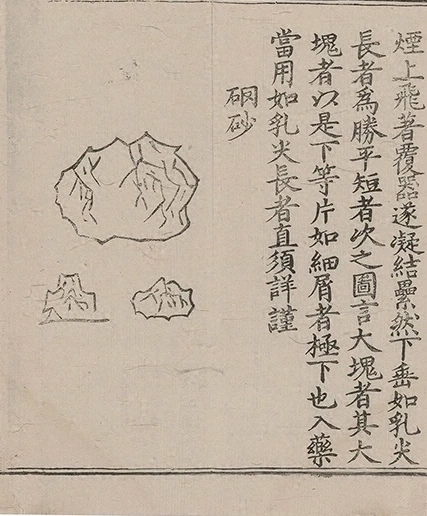 煙上飛著覆器遂凝結纍然下垂如乳尖
長者爲勝平短者次之圖言大塊者其大
塊者以是下等片如細屑者極下也入藥
當用如乳尖長者直須詳謹
硇砂